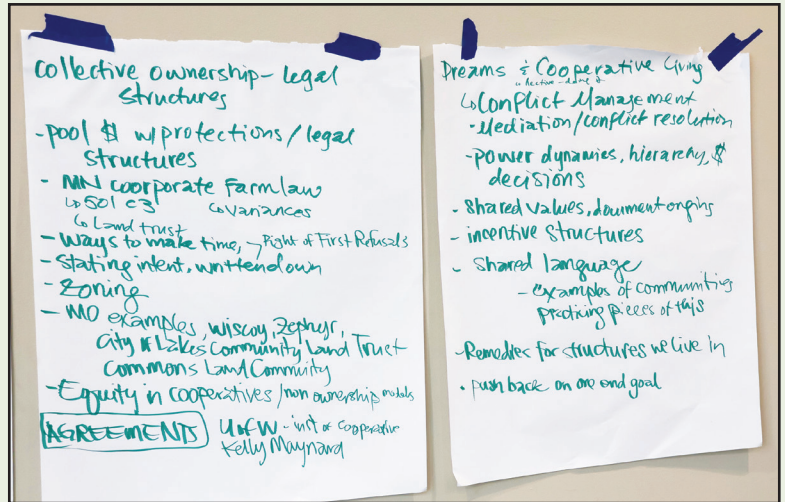 collective ownership - legal
structures
- pool $ w/protections / legal
structures
- MN coorporate farm law
↳ 501 c3 ↳ variances
↳ Land trust
- Ways to make time, Right of First Refusals
- Stating intent, written down
- Zoning
- MO examples, wiscoy, Zephyr,
City of Lakes Community Land Trust
Commons Land Community
- Equity in cooperatives / non ownership models
AGREEMENTS
U of W - inst of cooperative
Kelly Maynard
Dreams & Cooperative living
↳ Conflict Management
• Mediation/conflict resolution
- power dynamics, hierarchy, $
decisions
- Shared values, document ongoing
- incentive structures
- Shared language
- examples of communities
practicing pieces of this
- Remedies for structures we live in
• push back on one end goal